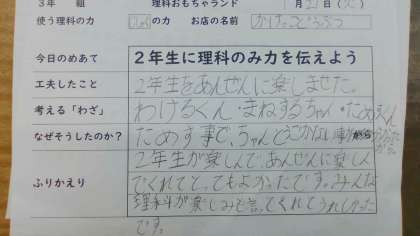 3年 組 理科おもちゃランド 1月21日(火)
使う理科の力 じしゃくの力 お店の名前 かけっこどうぶつ
今日のめあて 2年生に理科のみ力を伝えよう
工夫したこと 2年生をあんぜんに楽しませた。
考える「わざ」 わけるくん・まねするちゃん・ためすくん
なぜそうしたのか? ためす事で、ちゃんと
2年生が楽しんで、あんぜんに楽しん
ふりかえり でくれてと、てもよかったです。みんな
理科が楽しみと言、てくれてうれしかった
です。